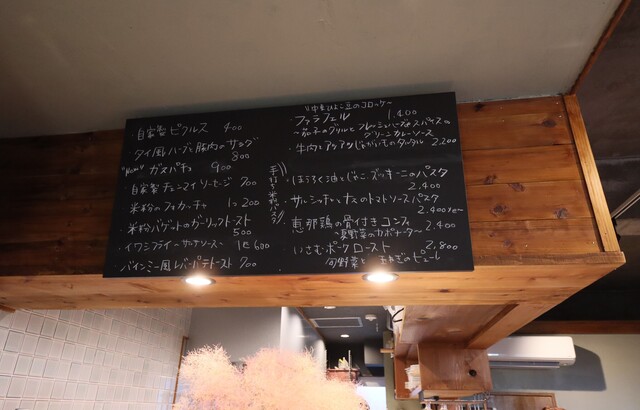 ・自家製ピクルス 400
・タイ風ハーブと豚肉のサラダ
800
"New" ガスパチョ 900
・自家製チェンマイソーセージ 700
・米粉のフォカッチャ 1コ 200
・米粉バゲットのガーリックトースト
500
・イワシフライ 1匹 600
・バインミー風レバーパテトースト 700
手打ち米粉パスタ
"中東ひよこ豆のコロッケ"
・ファラフェル 1,400
〜茄子のグリルとフレッシュハーブ&スパイスの
グリーンカレーソース
・牛肉と じゃがいものタルタル 2,200
・ほうろく油とじゃこ、ズッキーニのパスタ
2,400
・サルシッチャとナスのトマトソースパスタ
2,400
・恵那鶏の骨付きコンフィ 2,400
〜夏野菜のカポナータ〜
・いさむポークロースト 2,800
旬野菜と 玉ねぎのピュレ